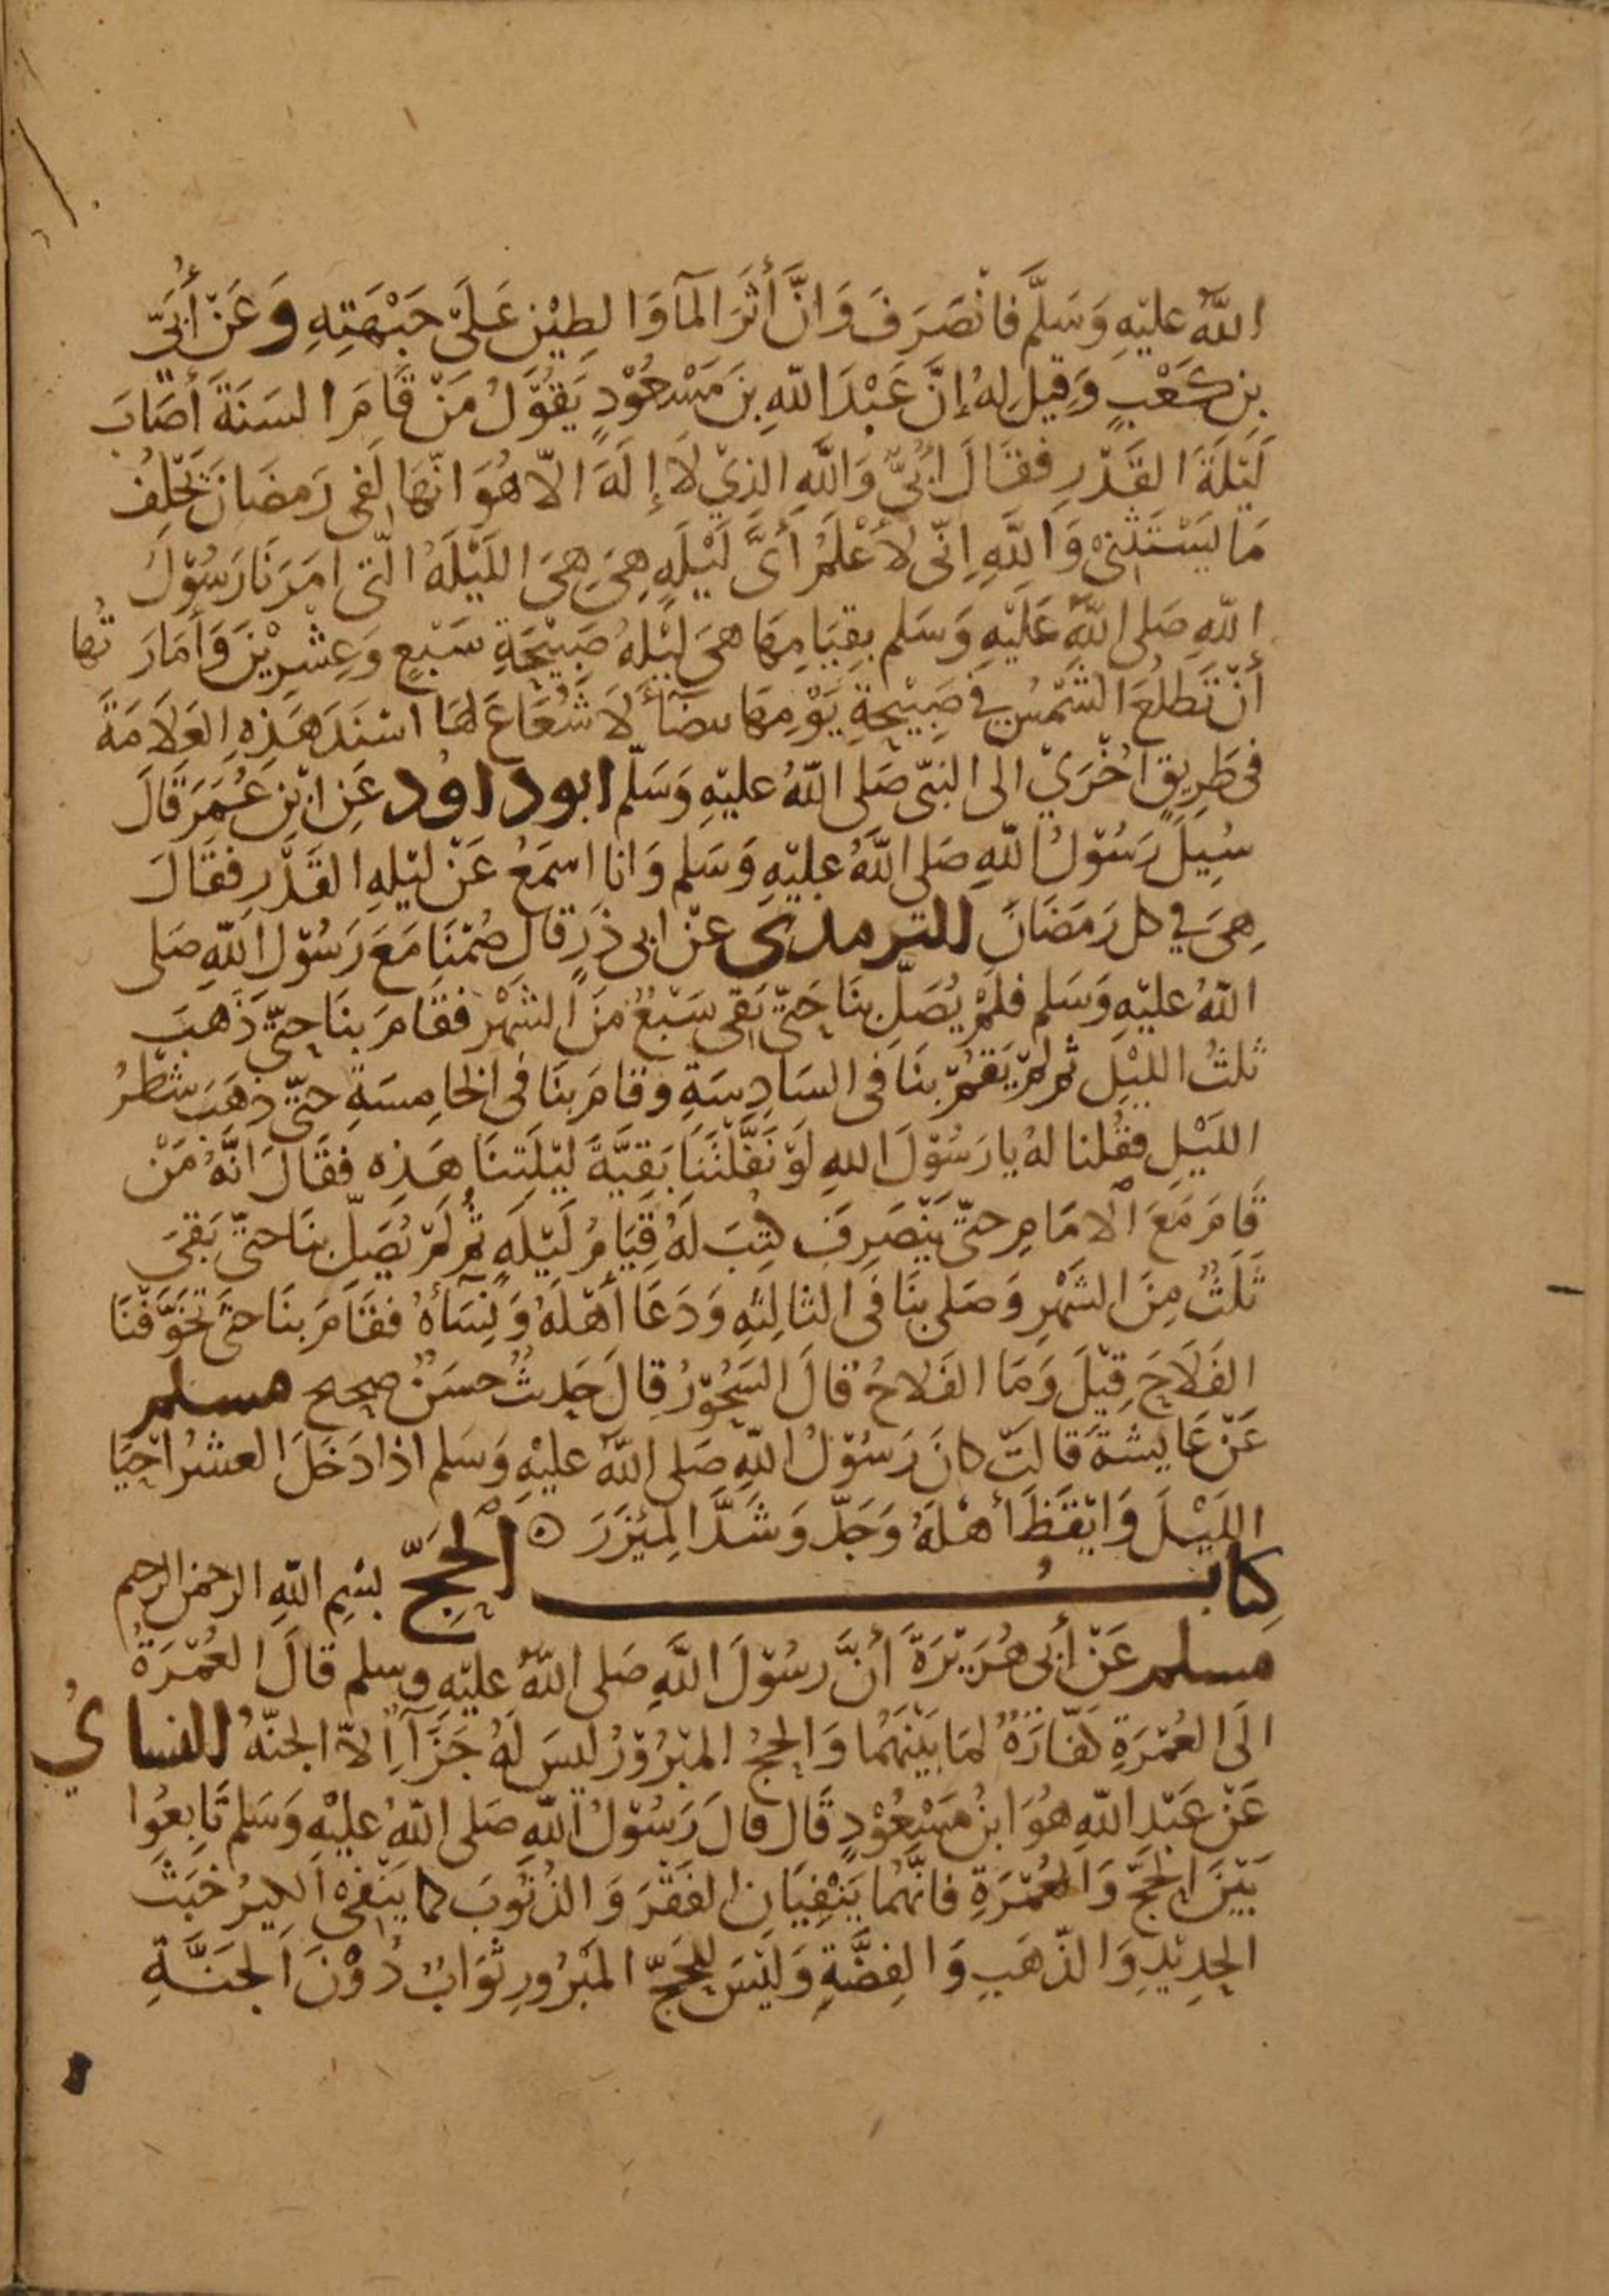 اللَّهُ عليْهِ وَسَلَّمَ فَانْصَرَفَ وَانَّ أثَرَ المآ وَالطِيْنِ عَلَى جَبْهَتِهِ وَعَنْ أُبَيّ
بِن كَعْبٍ وَقِيلَ لهُ إنَّ عَبْدَ اللَّهِ بنَ مَسْعُوْدٍ يَقُوْلُ مَنْ قَامَ السَنَةَ أصَابَ
لَيْلَةَ القَدْرِ فقَالَ ابُيٌّ وَاللَّهِ الذِيْ لَا إلَهَ الّا هُوَ انَّهَا لَفِى رَمضَانَ يَحْلِفُ
مَا يَسْتَثْنِىْ وَاللَّهِ اِنّى لَأعْلَمُ أىَّ لَيْلَةٍ هِىَ هِىَ اللَيْلَهُ الّتى امَرَنَا رَسُوْلُ
اللَّهِ صَلى اللَّهُ عَلَيْهِ وَسَلم بِقِيَامِهَا هىَ لَيْلهُ صَبِيْحَةِ سَبْعٍ وَعِشْرِيْنَ وَأمَارَتُها
أنْ تَطلُعَ الشَمْسُ في صَبِيْحَةِ يَوْمِهَا بيضَآأ لَا شُعَاعَ لهَا اسْنَدَ هَذِهِ العَلَامَةَ
فى طَرِيقٍ اخْرَيْ الى النبىّ صَلى اللَّهُ عليْهِ وَسَلّم ابوداود عَنِ ابْنِ عُمَرَ قَالَ
سُيِلَ رَسُوْلُ اللَّهِ صَلى اللَّهُ عليْهِ وَسَلم وَانا اسمَعُ عَنْ ليْلهِ القَدْرِ فقَالَ
هِىَ في كل رَمَضَانَ للترمذي عنْ ابى ذَرٍ قالَ صُمْنَا مَعَ رَسُوْلِ اللَّهِ صَلى
اللَّهُ عليْهِ وَسَلم فلَمْ يُصَلِّ بنَا حَتّى بَقِىَ سَبْعٌ منَ الشَهْرِ فقَامَ بنَا حتّى ذَهَبَ
ثلثُ الليْلِ ثم لمْ يَقُمْ بنَا فى السَادِسَةِ وقامَ بنَا فى الخامِسَةِ حتّى ذهَبَ شطْرُ
الليْلِ فقُلنا لهُ يا رَسُوْلَ اللهِ لَوْ نَفَّلْتَنَا بَقِيَّةَ ليْلَتِنَا هَذِهِ فقَالَ انَّهُ مَنْ
قَامَ مَعَ الامَامِ حتّى يَنْصَرِفَ كُتِبَ لَهُ قِيَامُ لَيْلَةٍ ثُم لَمْ يُصَلِّ بنَا حتّى بَقِىَ
ثَلَثٌ مِنَ الشَهْرِ وَصَلى بنَا فى الثالِثهِ وَدَعَا أهْلَهُ وَنِسَآأهُ فقَامَ بنَا حتّىَ تخَوَّفْنَا
الفَلَاحَ قِيْلَ وَمَا الفَلَاحُ قالَ السَحُوْرُ قالَ حَديثٌ حسَنٌ صحيح مسلم
عَنْ عَايِشةَ قَالَتْ كانَ رَسُوْلُ اللَّهِ صَلى اللَّهُ عليْهِ وَسَلم اذا دَخَلَ العشْرُ احْيَا
الليْلَ وَايْقَظَ أهْلَهُ وَجَدّ وَشَدَّ المِئزَرَ
كِتابُ الحَجِّ بسْمِ اللَّهِ الرحمن الرحيم
مسلم عَنْ أبى هُرَيْرَةَ أنَّ رسُوْلَ اللَّهِ صَلى اللَّهُ عليْهِ وسلم قالَ العُمْرَةُ
الَى العُمْرَةِ كفّارَةٌ لمَا بَيْنَهُمَا وَالحجُ المبْرُوْرُ ليسَ لهُ جَزَآ اِلاّ الجنّهُ النسائيُ
عَنْ عَبْدِ اللَّهِ هُوَ ابنُ مَسْعُوْدٍ قَال قالَ رَسُوْلُ اللَّهِ صَلى اللَّهُ عليْهِ وَسَلم تَابِعُوا
بَيْنَ الحَجِّ وَالعُمْرَةِ فانَّهُما يَنْفِيَانِ الفَقْرَ وَالذُنُوبَ كما يَنْفِىْ الكيرُ خبَثَ
الحدِيْدِ وَالذّهَبِ وَالفِضَّةِ وَلَيْسَ لِلحَجِّ المَبْرُورِ ثَوَابٌ دُوْنَ الجَنَّةِ